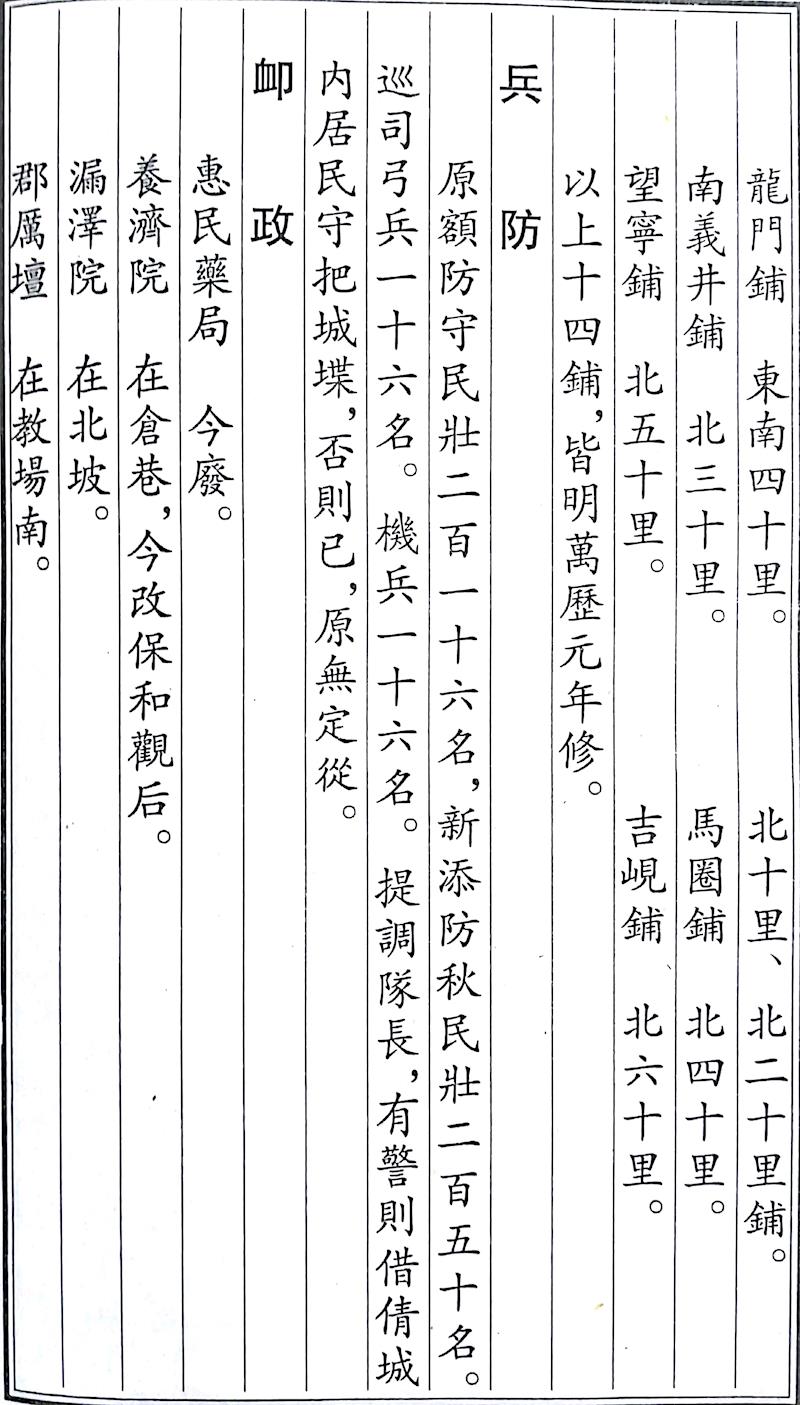 龍門鋪　東南四十里。　北十里、北二十里鋪。
南義井鋪　北三十里。　馬圈鋪　北四十里。
望寧鋪　北五十里。　吉峴鋪　北六十里。
以上十四鋪，皆明萬歷元年修。
兵　防
原額防守民壯二百一十六名，新添防秋民壯二百五十名。
巡司弓兵一十六名。機兵一十六名。提調隊長，有警則借倩城
内居民守把城堞，否則已，原無定從。
卹　政
惠民藥局　今廢。
養濟院　在倉巷，今改保和觀后。
漏澤院　在北坡。
郡厲壇　在教場南。